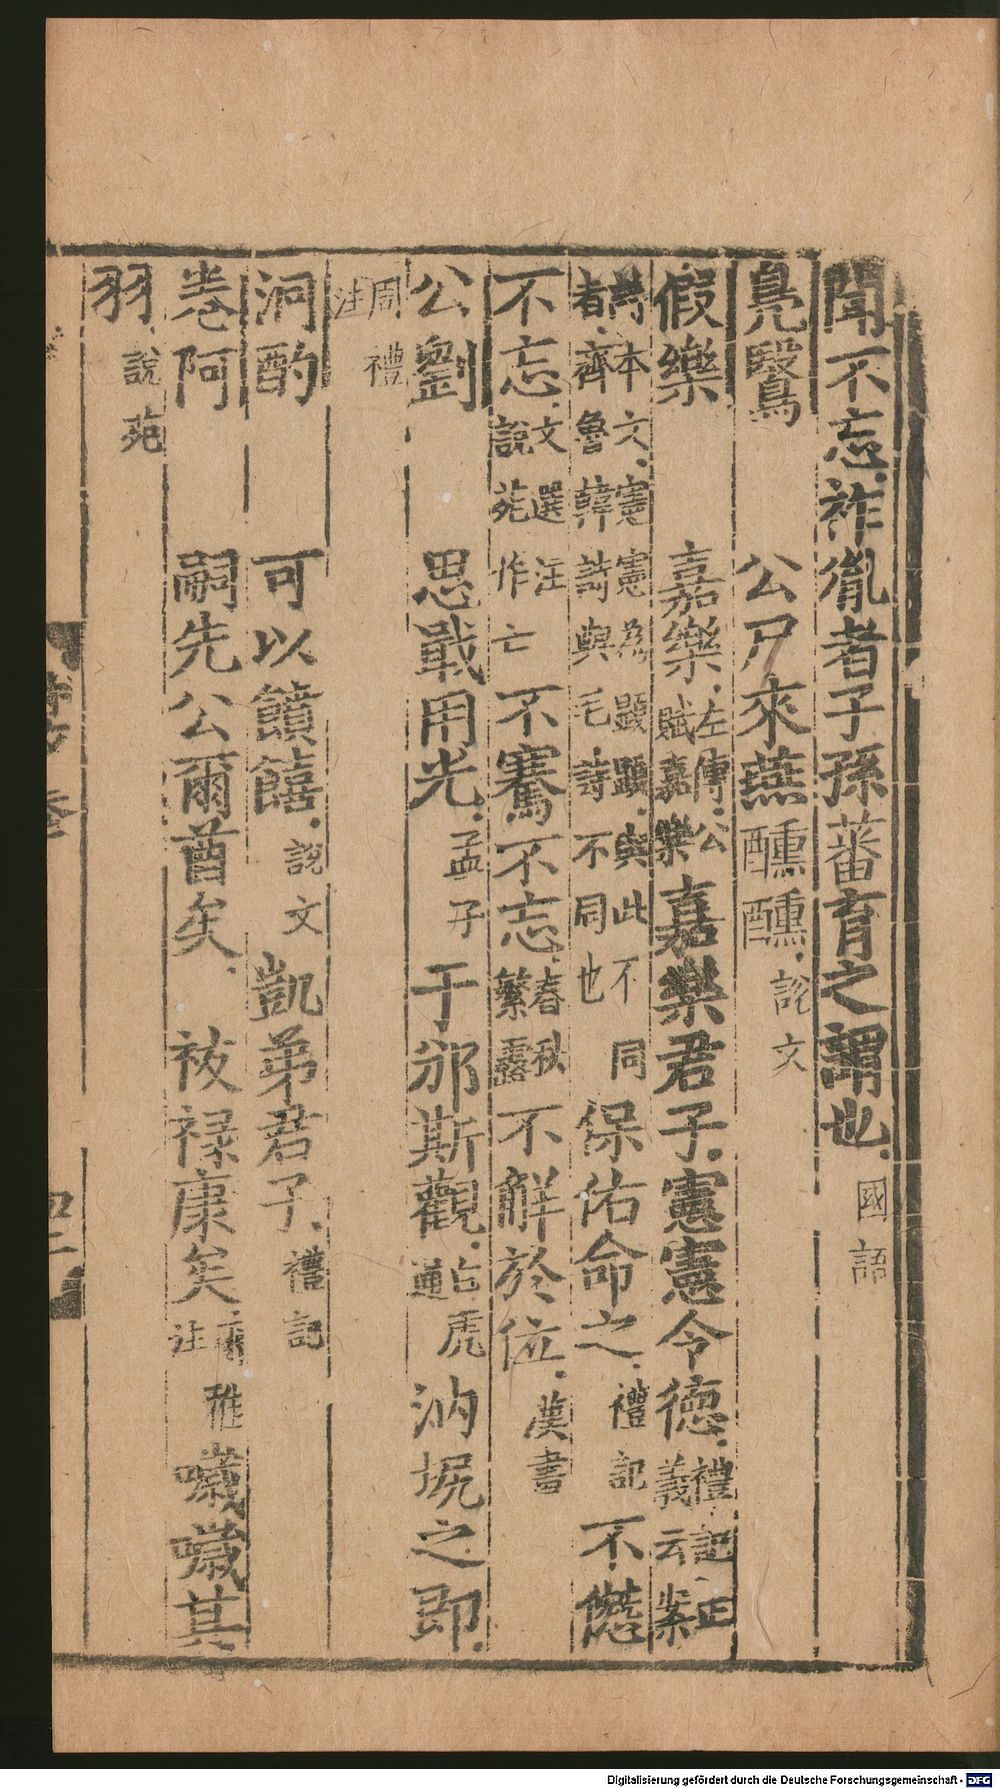 聞不忘祚胤者子孫蕃育之謂也國語
鳧鷖　公尸來燕醺醺說文
假樂　嘉樂左傳公賦嘉樂嘉樂君子憲憲令德禮記正義云案
詩本文憲憲為顯顯與此不同者齊魯韓詩與毛詩不同也保佑命之禮記不僁
不忘文選注說苑作亡不騫不忘春秋繁露不解於位漢書
公劉　思戢用光孟子于邠斯觀白虎通汭坭之即
周禮注
泂酌　可以饙饎說文凱弟君子禮記
卷阿　嗣先公爾酋矣　祓祿康矣雅注噦噦其
羽說苑
四二
Digitalisierung gefördert durch die Deutsche Forschungsgemeinschaft - DFG